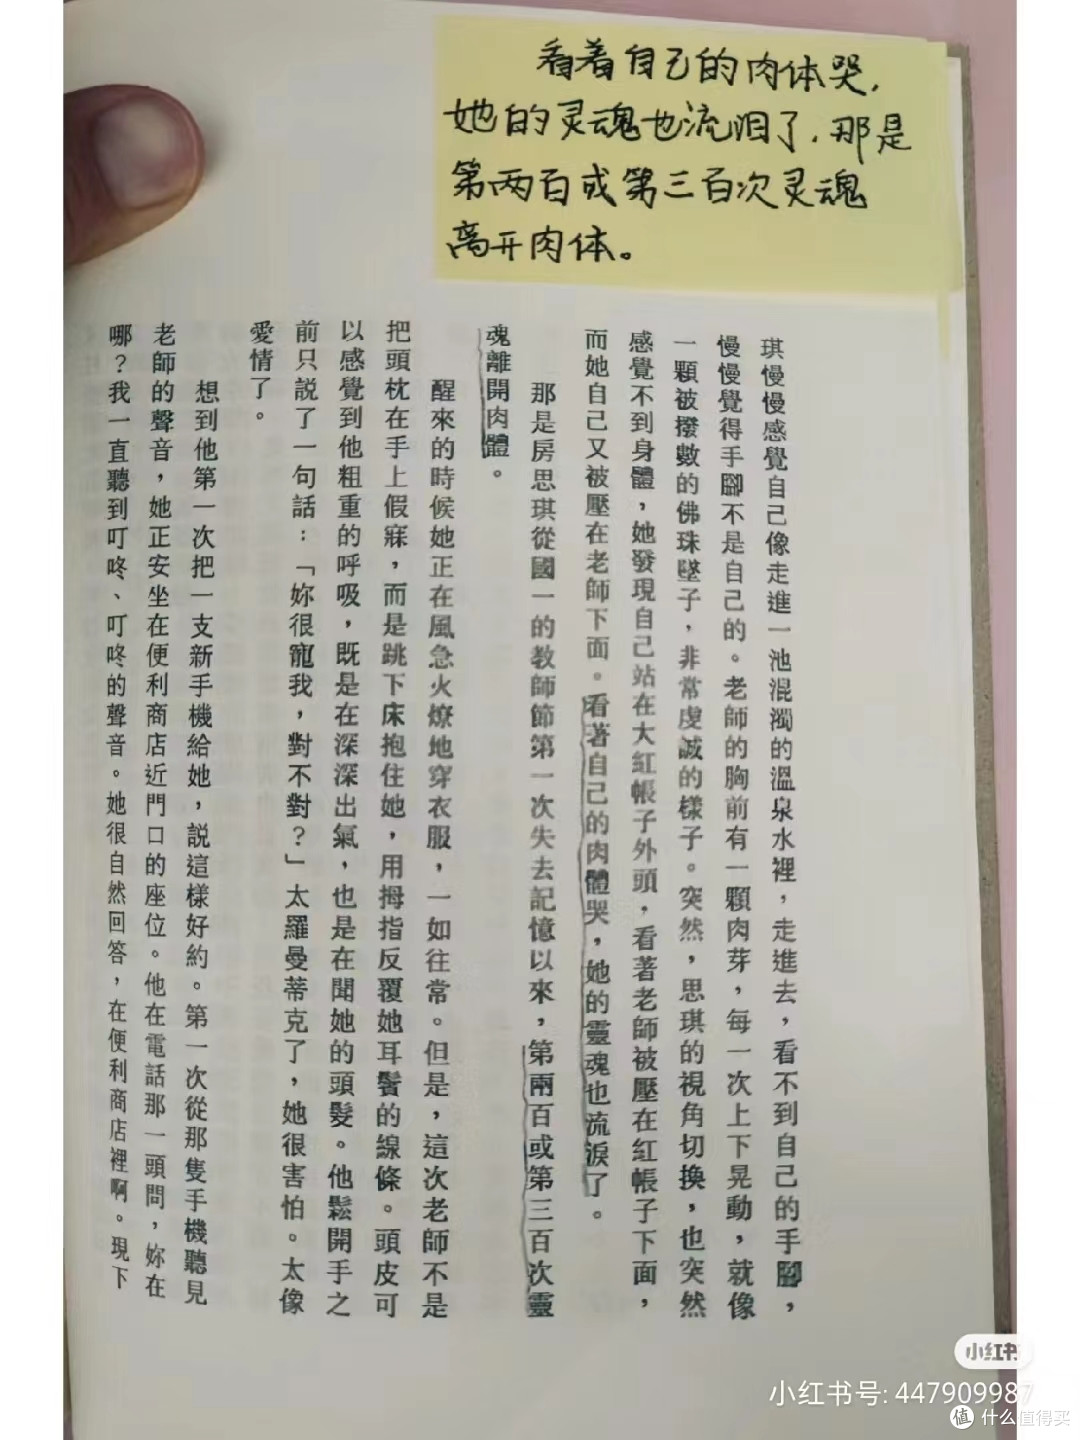 看着自己的肉体哭,
她的灵魂也流泪了,那是
第两百或第三百次灵魂
离开肉体。
琪慢慢感覺自己像走進一池混濁的溫泉水裡，走進去，看不到自己的手腳，
慢慢覺得手腳不是自己的。老師的胸前有一顆肉芽，每一次上下晃動，就像
一顆被撥數的佛珠墜子，非常虔誠的樣子。突然，思琪的視角切換，也突然
感覺不到身體，她發現自己站在大紅帳子外頭，看著老師被壓在紅帳子下面，
而她自己又被壓在老師下面。看著自己的肉體哭，她的靈魂也流淚了。
那是房思琪從國一的教師節第一次失去記憶以來，第兩百或第三百次靈
魂離開肉體。
醒來的時候她正在風急火燎地穿衣服，一如往常。但是，這次老師不是
把頭枕在手上假寐，而是跳下床抱住她，用拇指反覆她耳鬢的線條。頭皮可
以感覺到他粗重的呼吸，既是在深深出氣，也是在聞她的頭髮。他鬆開手之
前只說了一句話：「妳很寵我，對不對？」太羅曼蒂克了，她很害怕。太像
愛情了。
想到他第一次把一支新手機給她，説這樣好約。第一次從那隻手機聽見
老師的聲音，她正安坐在便利商店近門口的座位。他在電話那一頭問，妳在
哪？我一直聽到叮咚、叮咚的聲音。她很自然回答，在便利商店裡啊。現下
小红书
小红书号: 447909987
值 什么值得买